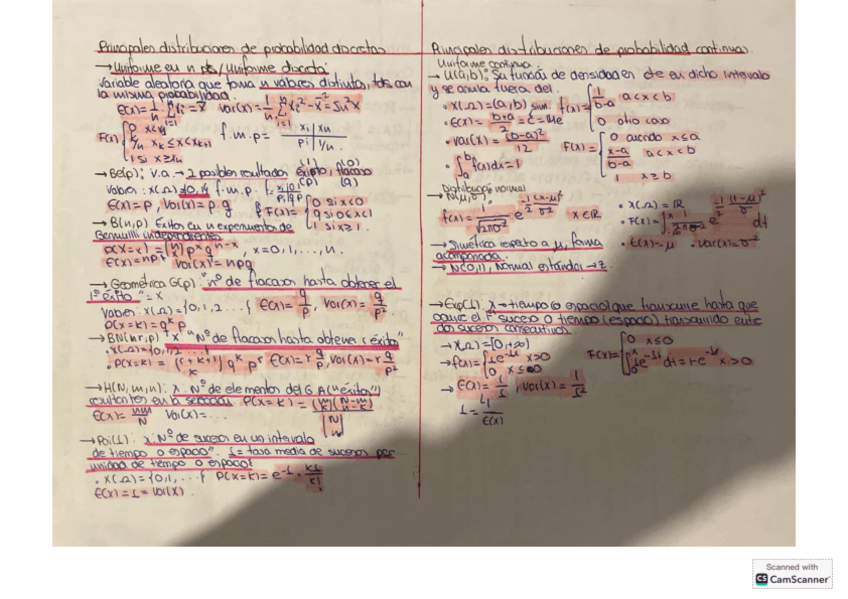 Principales distribuciones de probabilidad discretas
→ Uniforme en n pts/Uniforme discreta:
Variable aleatoria que toma n valores distintos, todos con
la misma probabilidad.
E(x) = 1/n Σ xi = x̄ Var(x) = 1/n Σ xi² - x̄² = Sn²x
F(x) { 0 x<x1
k/n xk ≤ x < xk+1
1 si x ≥ xn
f.m.p = xi | xn
pi | 1/n
→ Be(p): v.a → 2 posibles resultados éxito, fracaso
(1) (0)
(p) (q)
Valores: X(Ω)
f.m.p.
E(x) = p, Var(x) = p·q
F(x) = { 0 si x<0
q si 0≤x<1
1 si x≥1
→ B(n,p) Éxitos en n experimentos de
Bernulli independientes
P(X=x) = (n x) p^x q^n-x, x=0,1,...,n.
E(x) = np Var(x) = npq
→ Geométrica G(p) "nº de fracasos hasta obtener el
1º éxito" = x
Valores: X(Ω) = {0,1,2...} E(x) = q/p, Var(x) = q/p²
P(X=k) = q^k p
→ BN(r,p) x "Nº de fracasos hasta obtener r éxitos"
• X(Ω) = {0,1,2...
• P(X=k) = (r+k-1 k) q^k p^r E(x) = r q/p, Var(x) = r q/p²
→ H(N,m,n): x: Nº de elementos del G A ("éxito")
resultantes en la
P(X=k) = (m k)(N-m n-k) / (N n)
E(x) = nm/N Var(x) = ...
→ Poi(λ): x: Nº de sucesos en un intervalo
de tiempo o espacio". λ = tasa media de sucesos por
unidad de tiempo o espacio
• X(Ω) = {0,1,...} P(X=k) = e^-λ
E(x) = λ = Var(x)
Principales distribuciones de probabilidad continua.
Uniforme continua
→ U(a,b): Su función de densidad es cte en dicho intervalo
y se anula fuera de él.
• X(Ω) = (a,b) f(x) = { 1/b-a a<x<b
0 otro caso
• E(x) = b+a/2 = = Me
• Var(x) = (b-a)²/12
F(x) = { 0 cuando x≤a
x-a/b-a a<x<b
1 x≥b
• ∫ f(x)dx = 1
Distribución normal
→ N(μ,σ):
f(x) = 1/√2πσ² e^-1/2 (x-μ)²/σ² x∈ℝ
• X(Ω) = ℝ
• F(x) = ∫ 1/√2πσ² e^-1/2 (t-μ)²/σ dt
• E(x) = μ • Var(x) = σ²
→ Simétrica respecto a μ, forma
acampanada.
→ N(0,1), Normal estándar → z
→ Exp(λ) x → tiempo (o espacio) que transcurre hasta que
ocurre el 1º suceso o tiempo (espacio) transcurrido entre
dos sucesos consecutivos.
→ X(Ω) = [0,+∞)
→ f(x) = { λe^-λx x>0
0 x≤0
F(x) = { 0 x≤0
∫ λe^-λt dt = 1-e^-λx x>0
→ E(x) = 1/λ, Var(x) = 1/λ²
λ = 1/E(x)
Scanned with
CS CamScanner